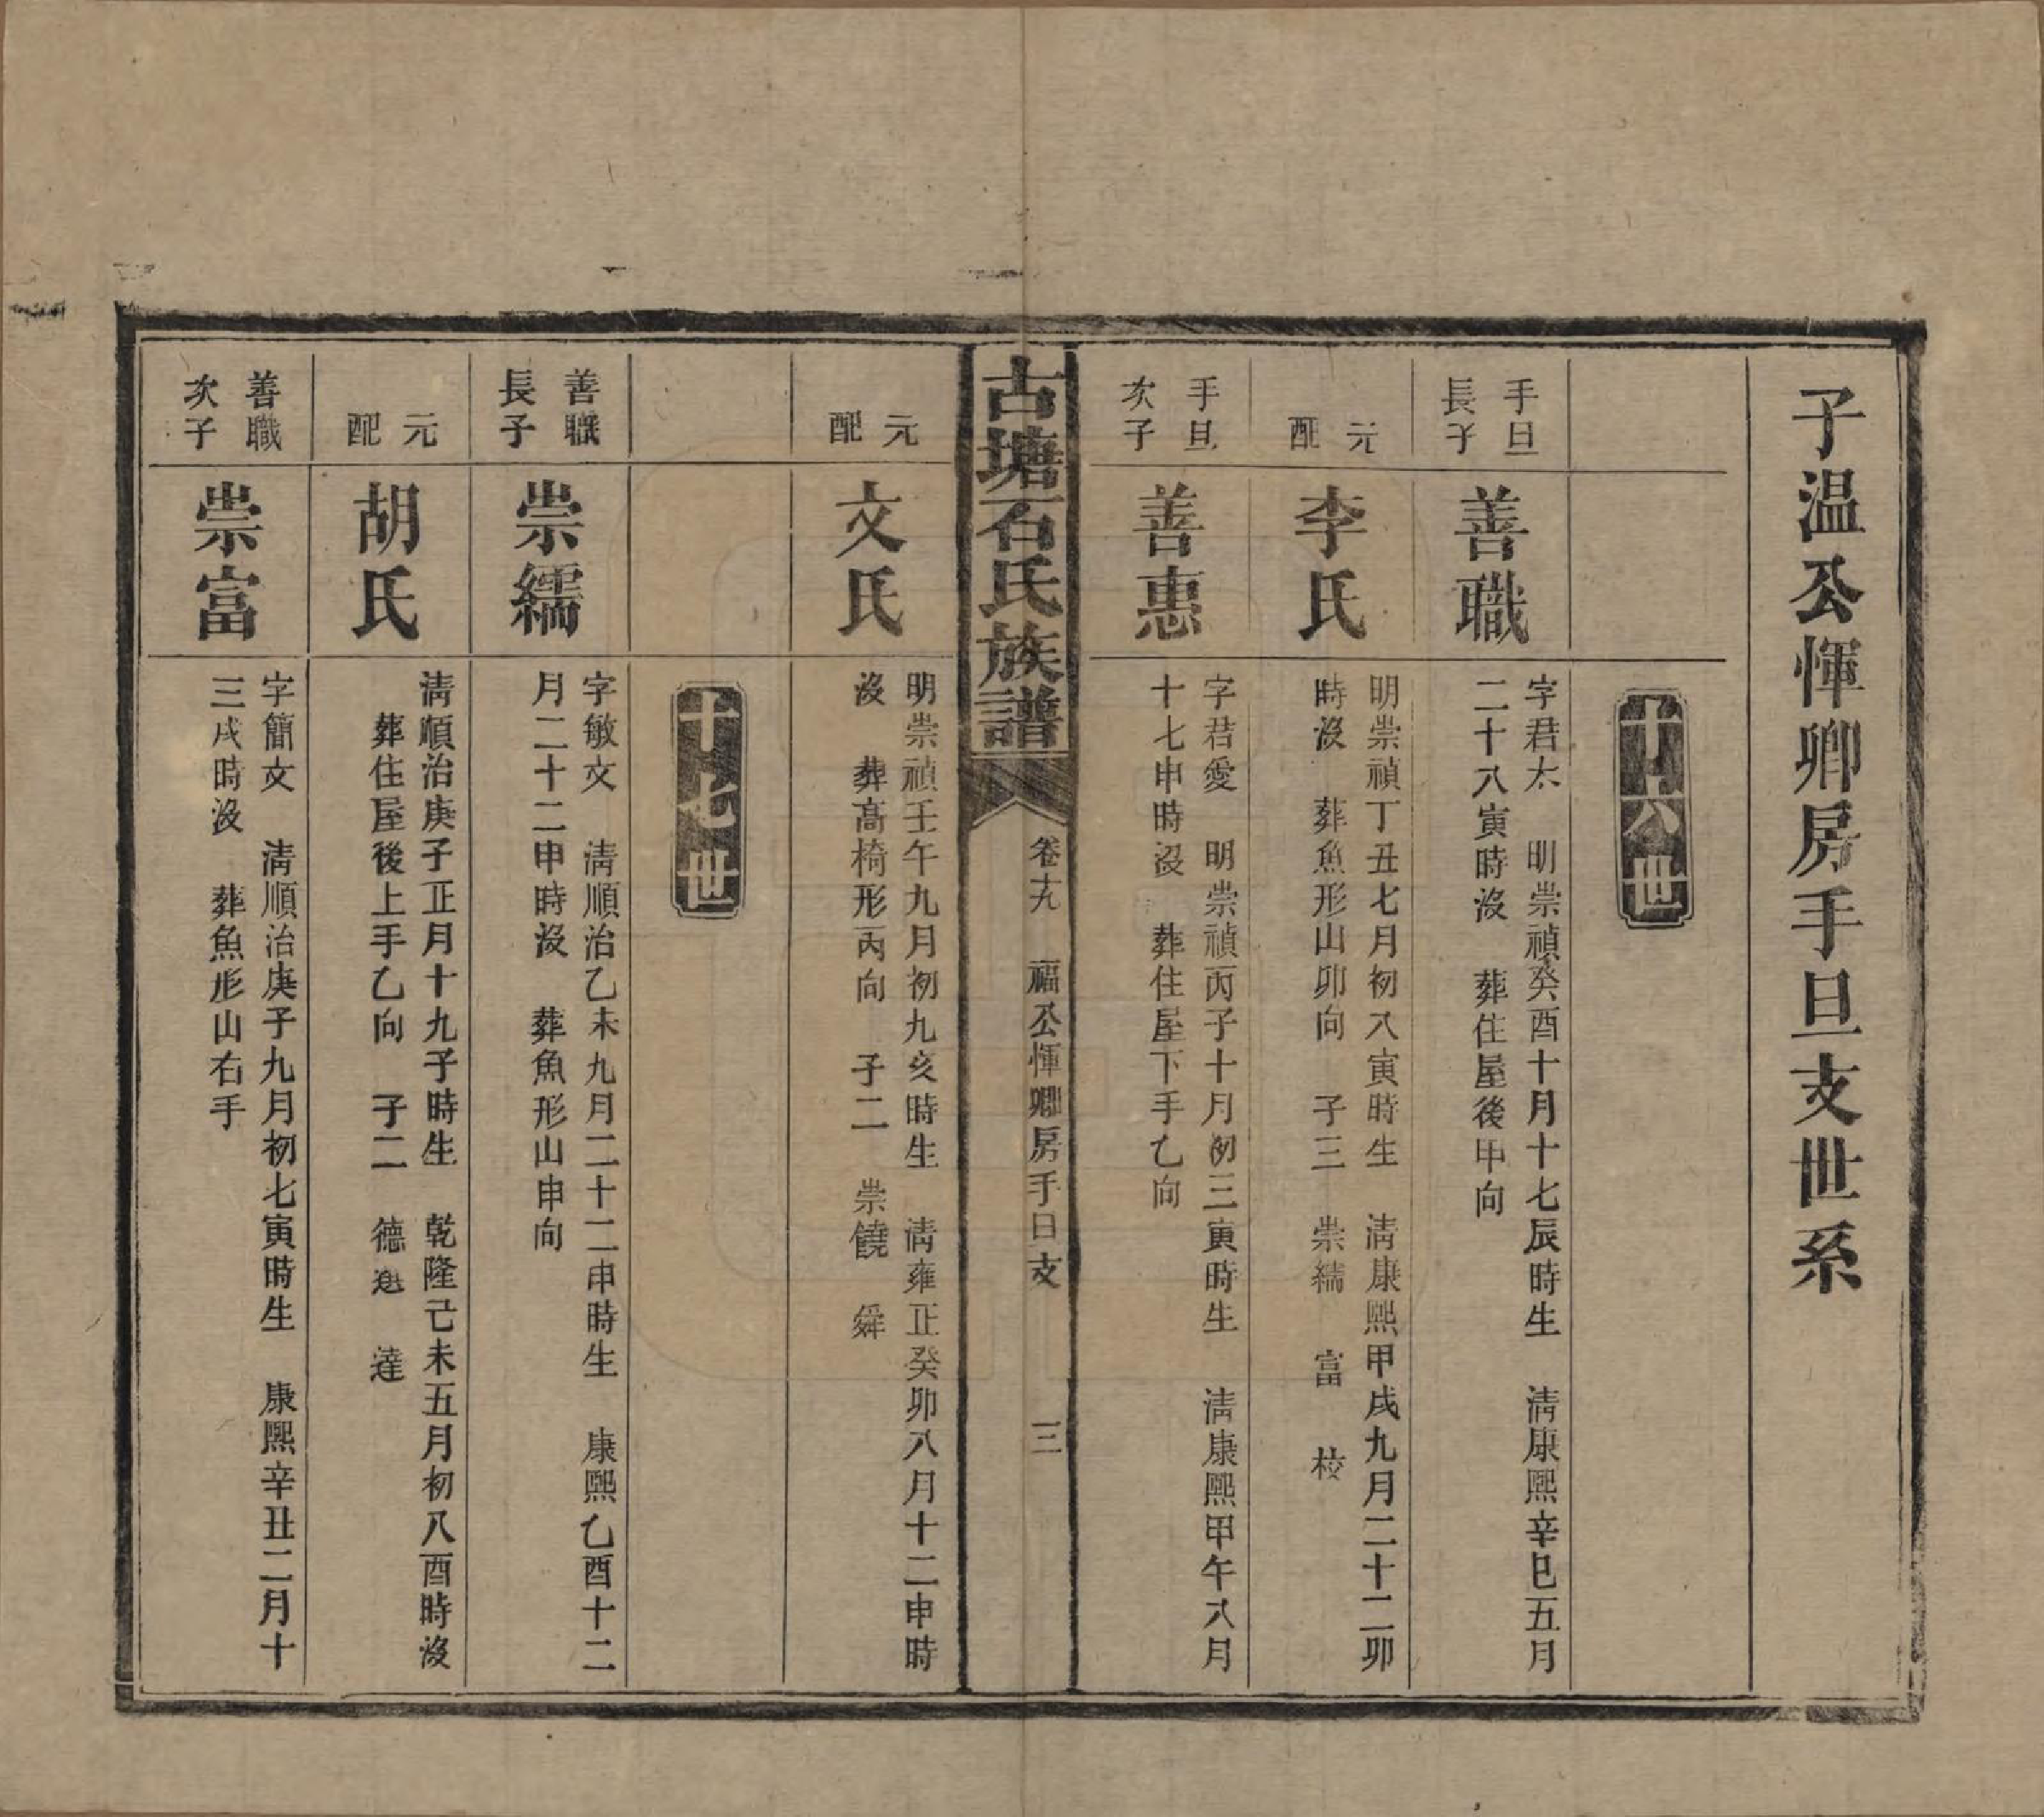 子温公惲卿房手旦支世系
十六世
手旦
長子
善職
字君太　明崇禎癸酉十月十七辰時生　清康熙辛巳五月
二十八寅時沒　葬住屋後甲向
元
配
李氏
明崇禎丁丑七月初八寅時生　清康熙甲戌九月二十二卯
時沒　葬魚形山卯向　子三　崇繻　富　校
手旦
次子
善惠
字君愛　明崇禎丙子十月初三寅時生　清康熙甲午八月
十七申時沒　葬住屋下手乙向
古塘石氏族譜
卷十九　福公惲卿房手旦支　三
元
配
文氏
明崇禎壬午九月初九亥時生　清雍正癸卯八月十二申時
沒　葬高椅形丙向　子二　崇饒　舜
十七世
善職
長子
崇繻
字敏文　清順治乙未九月二十二申時生　康熙乙酉十二
月二十二申時沒　葬魚形山申向
元
配
胡氏
清順治庚子正月十九子時生　乾隆己未五月初八酉時沒
葬住屋後上手乙向　子二　德　達
善職
次子
崇富
字簡文　清順治庚子九月初七寅時生　康熙辛丑二月十
三戌時沒　葬魚形山右手